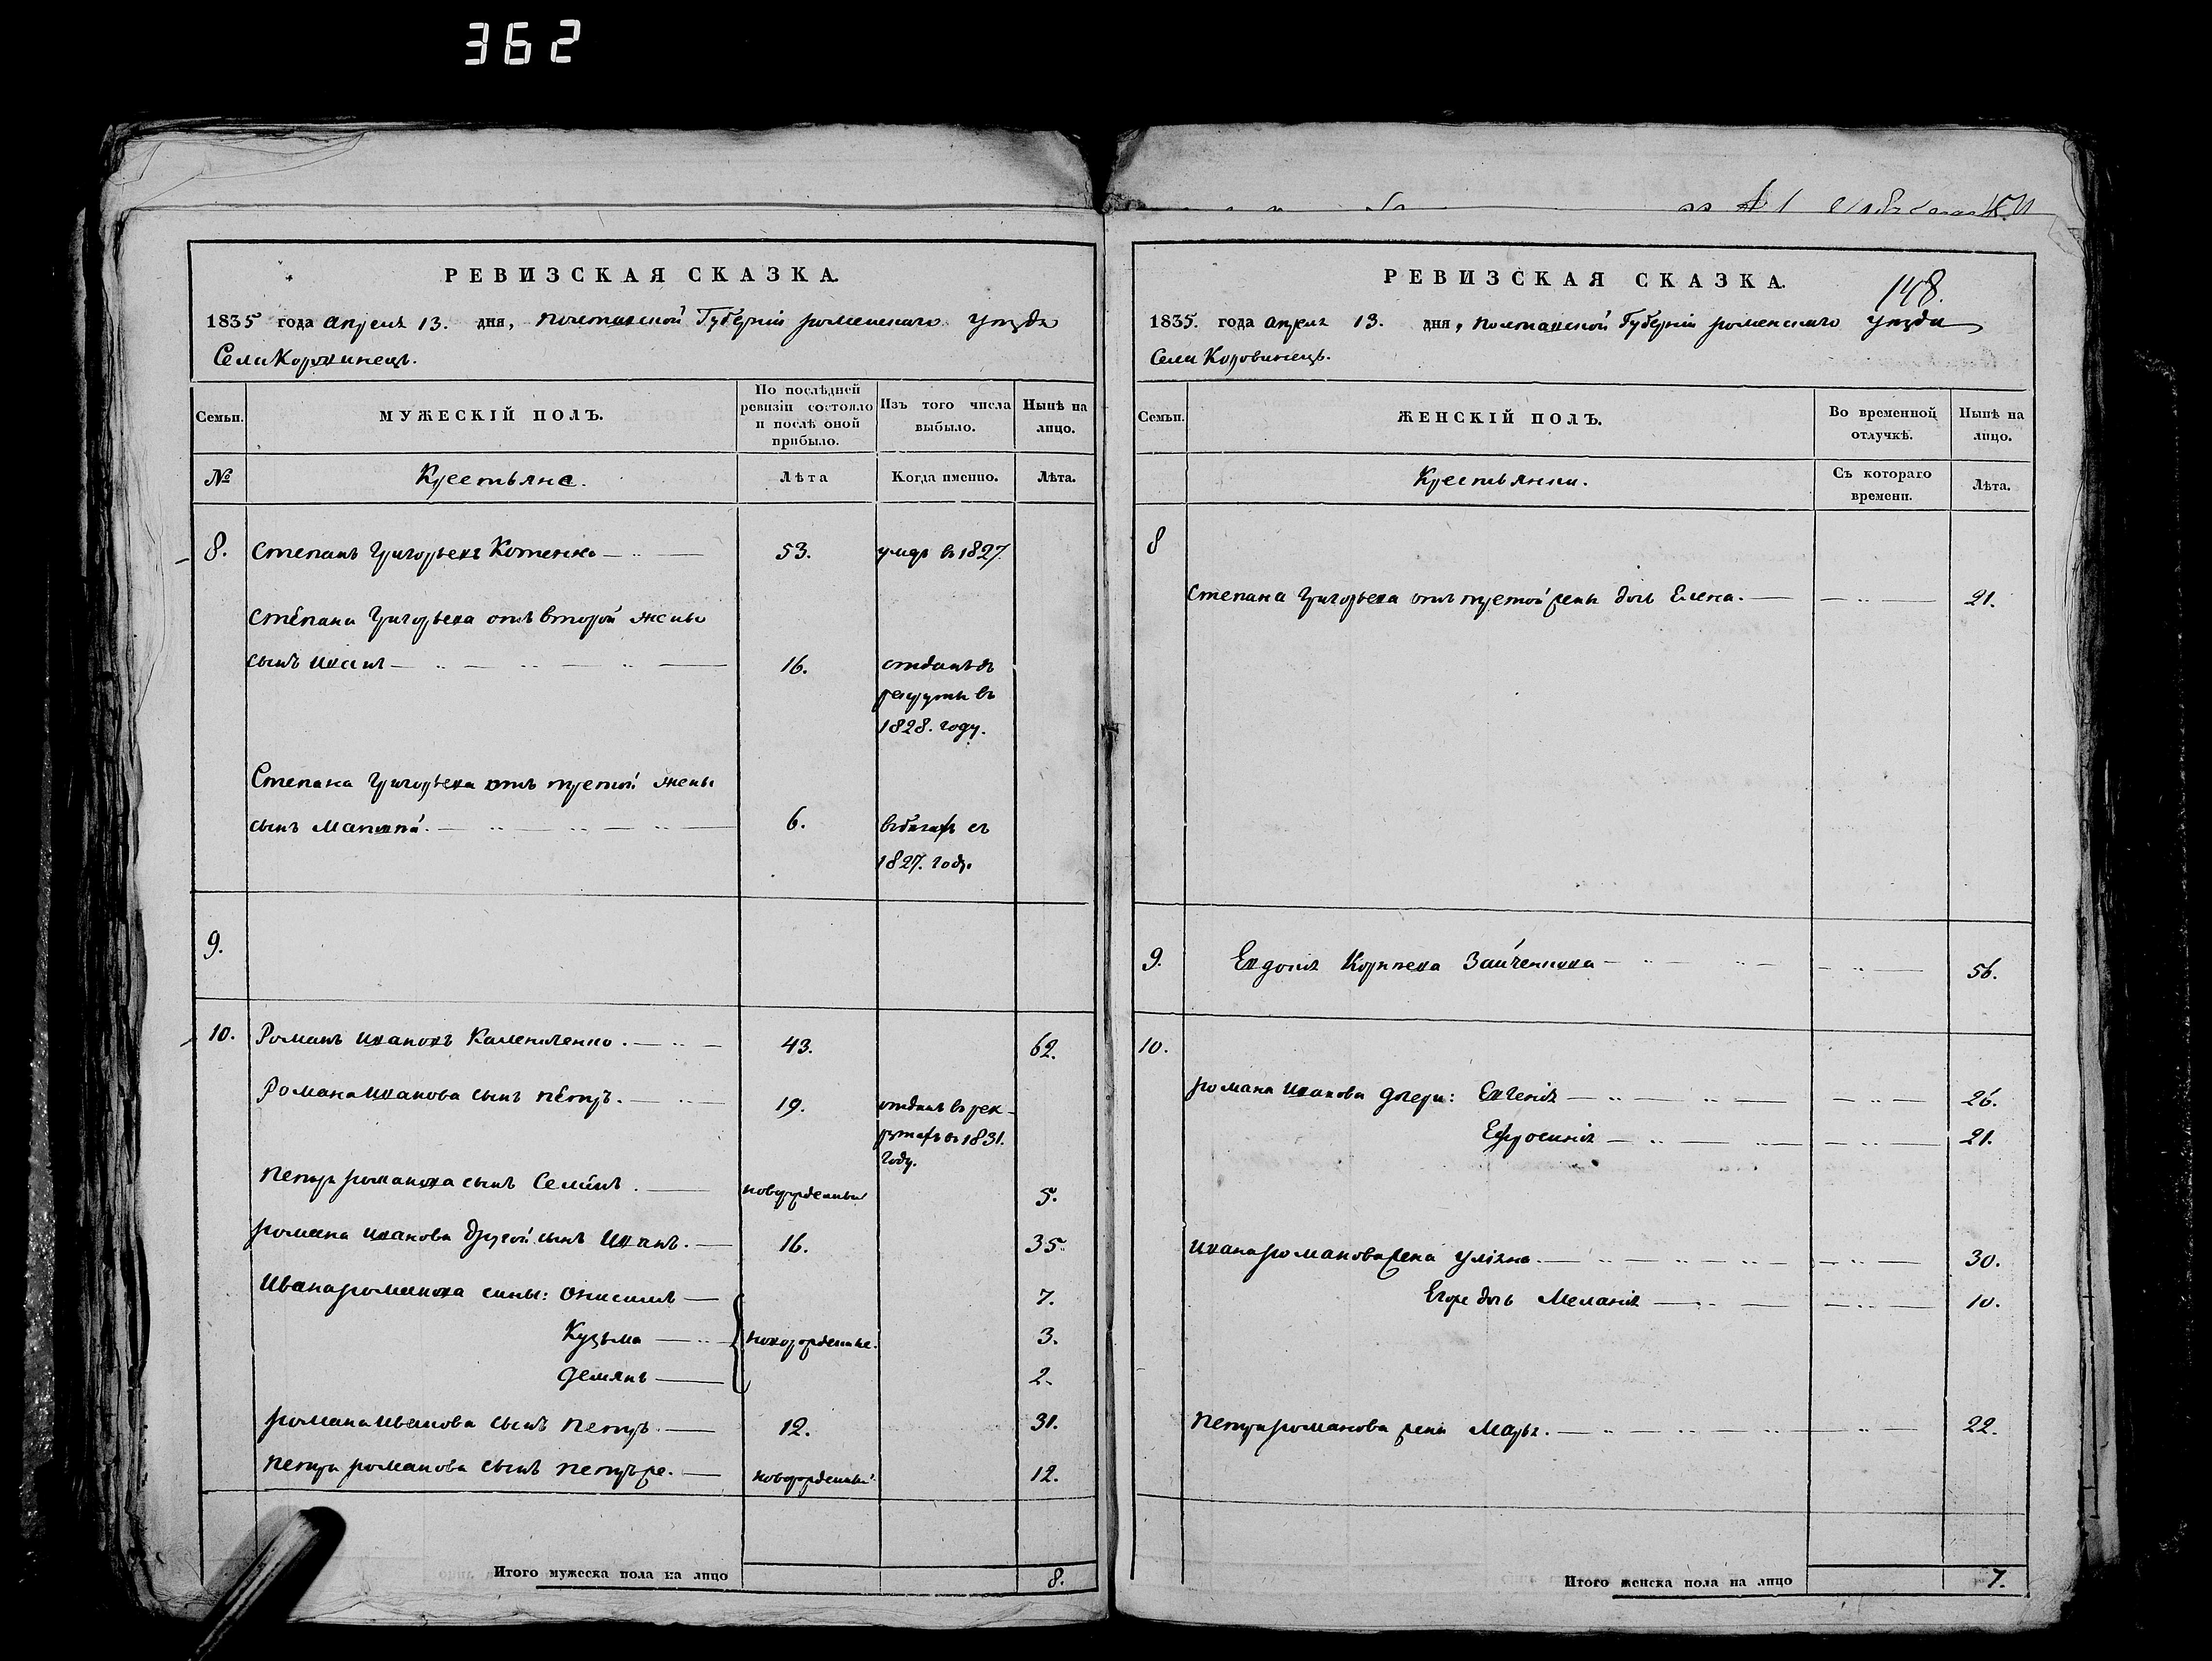 362
РЕВИЗСКАЯ СКАЗКА.
1835 года апреля 13. дня, Полтавской Губернiи роменского уезда
Села Коровинец.
Семьи.
МУЖЕСКIЙ ПОЛЪ.
По послѣдней ревизiи состояло и послѣ оной прибыло.
Изъ того числа выбыло.
Нынѣ на лицо.
№
Крестьяне.
Лѣта
Когда именно.
Лѣта.
8. Степанъ Григорьевъ Котенко 53. умре въ 1827.
Степана Григорьева отъ второй жены
сынъ Иванъ 16. отданъ въ
рекруты въ
1828. году.
Степана Григорьева отъ третой жены
сынъ 6. въ бегахъ съ
1827. году.
9.
10. Романъ Ивановъ 43. 62.
Романа Иванова сынъ Петръ. 19. отданъ въ рек-
рутахъ въ 1831.
году.
Петра романова сынъ Семенъ. новорожденный 5.
романа Иванова другой сынъ Иванъ. 16. 35.
Ивана романова сины: Онисимъ 7.
Кузьма новорожденные. 3.
Демянъ 2.
романа Иванова сынъ Петръ. 12. 31.
Петра романова сынъ новорожденный 12.
Итого мужеска пола на лицо 8.
РЕВИЗСКАЯ СКАЗКА.
148.
1835. года апреля 13. дня, Полтавской Губернiи роменского уезда
Села Коровинецъ.
Семьи.
ЖЕНСКIЙ ПОЛЪ.
Во временной отлучкѣ.
Нынѣ на лицо.
Крестьянки.
Съ котораго времени.
Лѣта.
8
Степана Григорьева отъ третой жены дочь Елена. 21.
9. Евдокия Зайченкова 56.
10.
романа Иванова дочери: Евгенiя 26.
Ефросинiя 21.
Ивана романова жена Улiяна. 30.
Егоже дочь Меланiя 10.
Петра романова жена Марья. 22.
Итого женска пола на лицо 7.